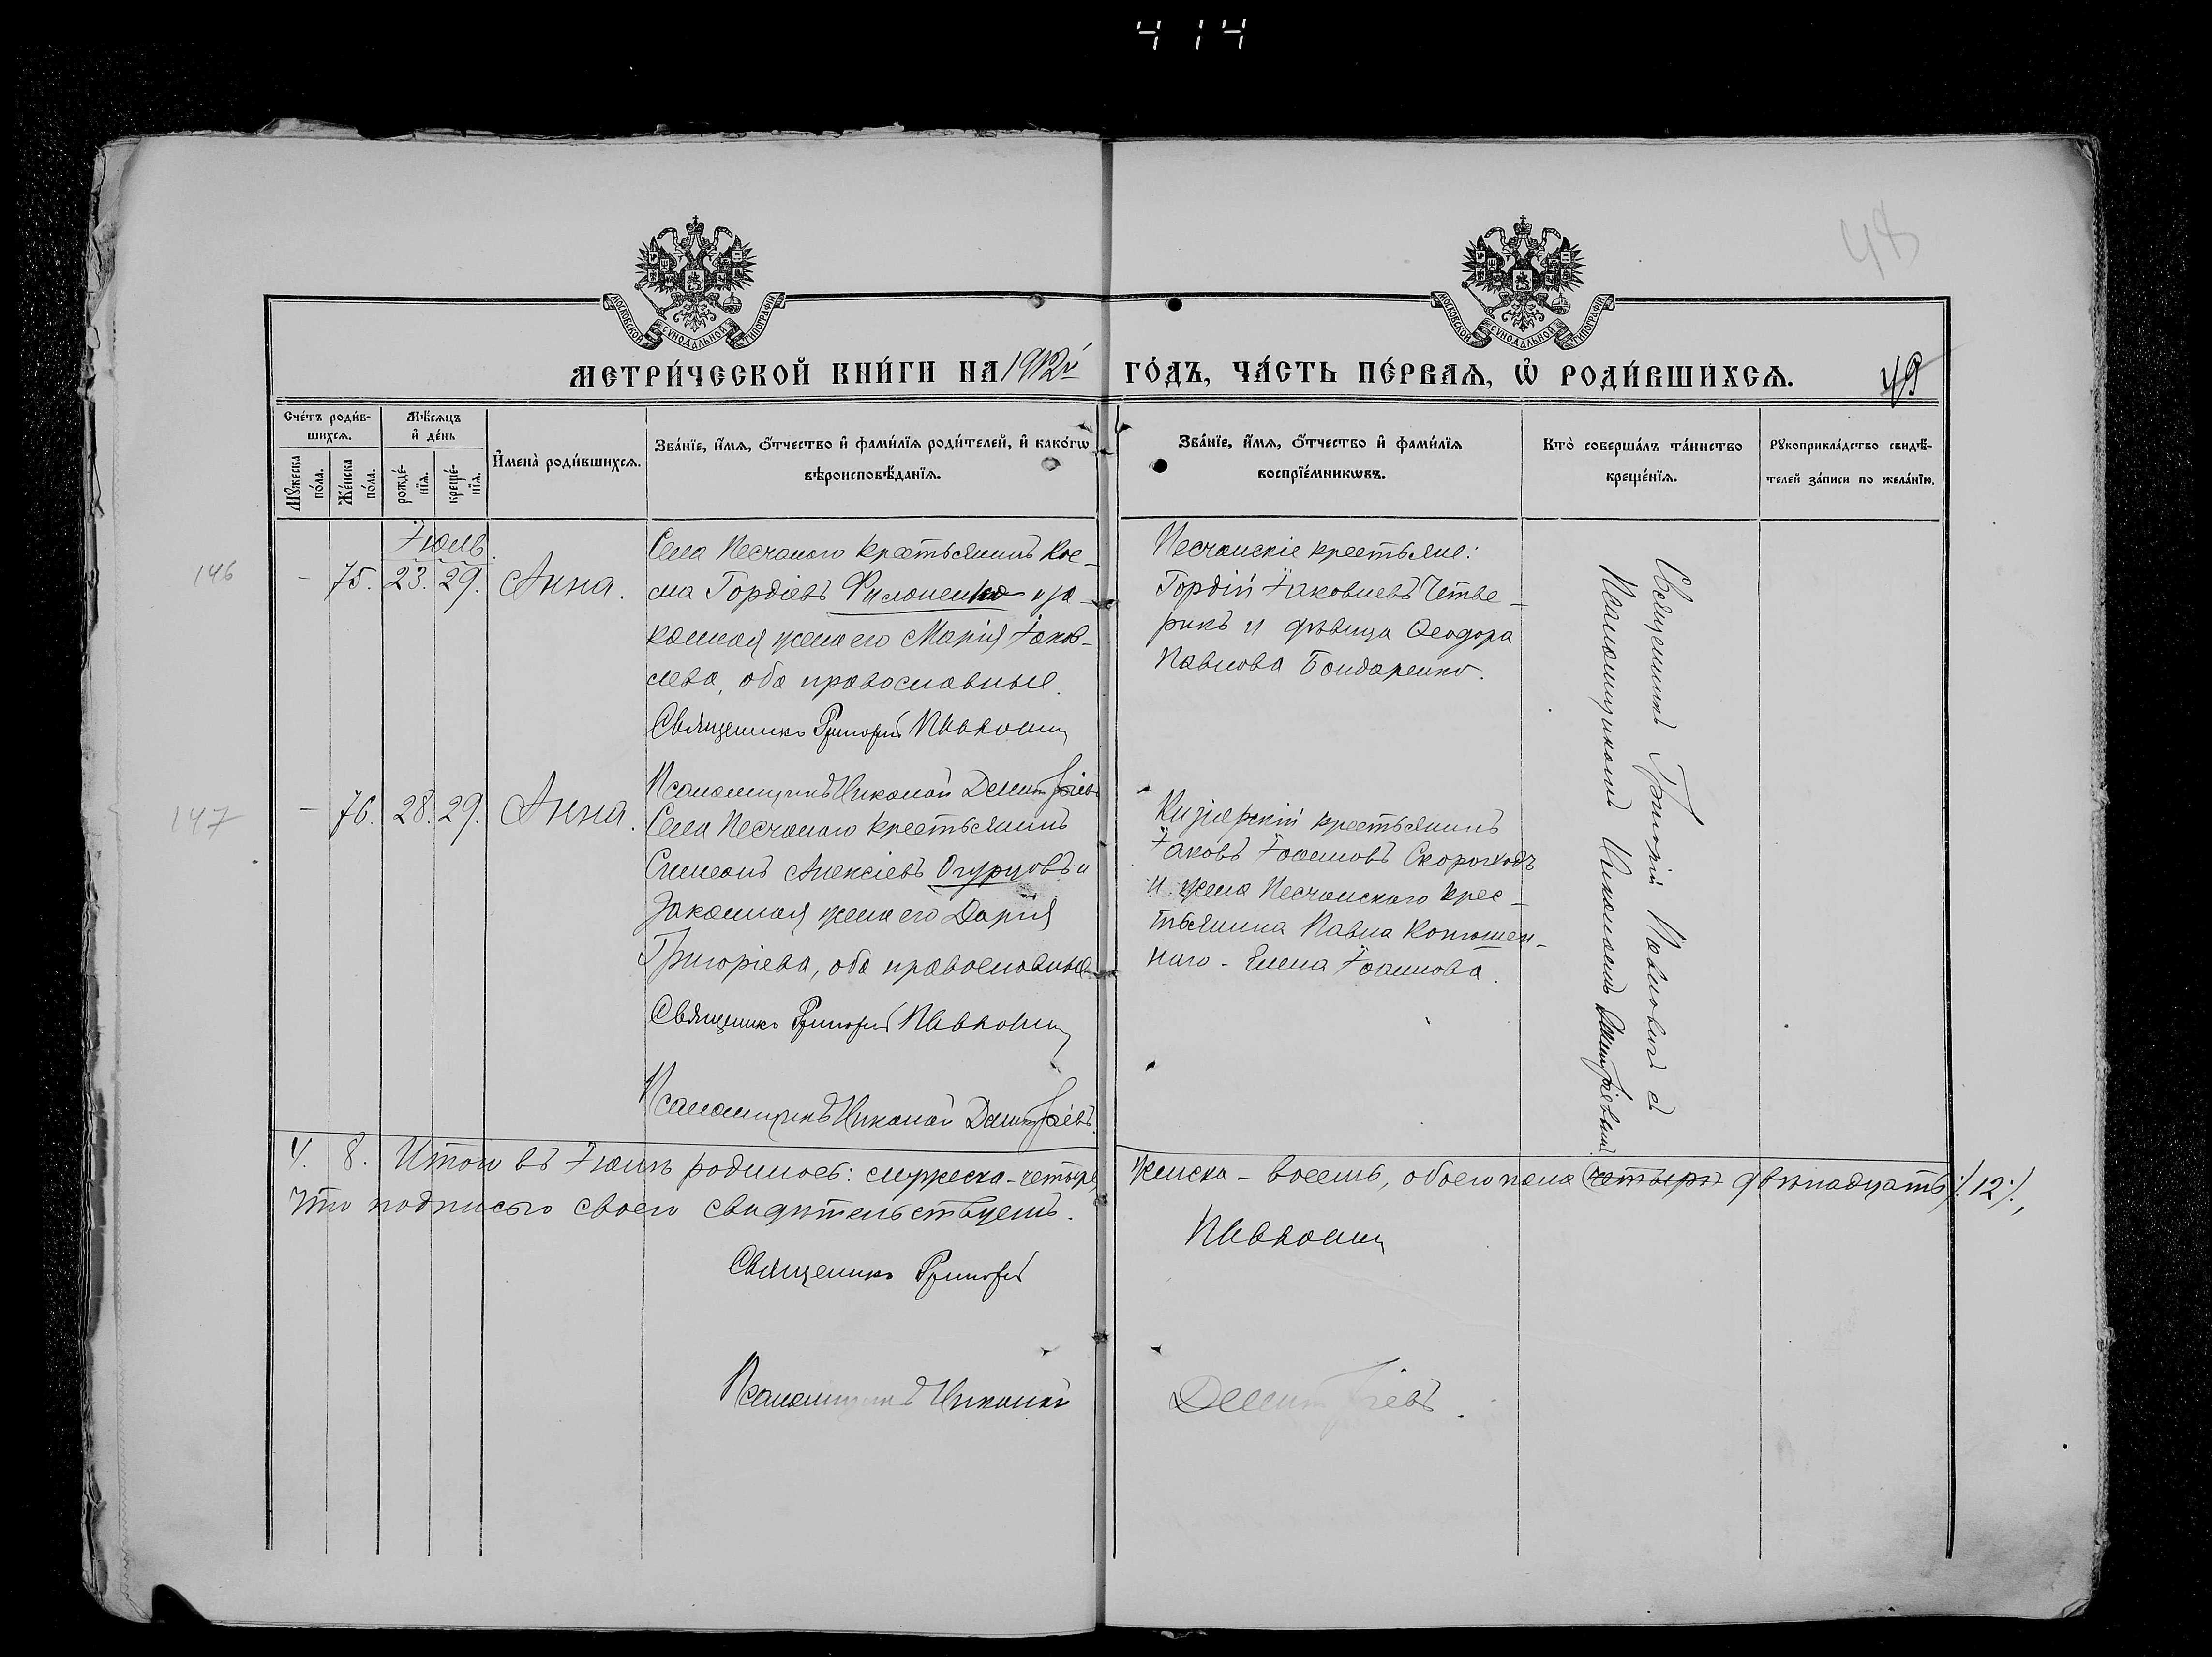 414
48
МОСКОВСКОЙ СѴНОДАЛЬНОЙ ТИПОГРАФІИ
МОСКОВСКОЙ СѴНОДАЛЬНОЙ ТИПОГРАФІИ
МЕТРИ́ЧЕСКОЙ КНИ́ГИ НА 1912й ГО́ДЪ, ЧА́СТЬ ПЕ́РВАѦ, Ѡ҆ РОДИ́ВШИХСѦ.
49
Сче́тъ роди́в-
шихсѧ.
Мꙋ́жеска по́ла.
Же́нска по́ла.
Мѣ́сѧцъ
и҆ де́нь
рожде́-нїѧ.
креще́-нїѧ.
И҆мена̀ роди́вшихсѧ.
Зва́нїе, и҆́мѧ, ѻ҆́тчество и҆ фами́лїѧ роди́телей, и҆ како́гѡ
вѣроисповѣ́данїѧ.
Зва́нїе, и҆́мѧ, ѻ҆́тчество и҆ фами́лїѧ
воспрїе́мникѡвъ.
Кто̀ соверша́лъ та́инство
креще́нїѧ.
Рꙋкоприкла́дство свидѣ́-
телей за́писи по жела́нїю.
Іюль.
146
- 75. 23. 29. Анна.
Села Песчаного крестьянинъ Кос-
ма Гордіевъ Филоненко и за-
конная жена его Марія Іаков-
лева, оба православные.
Священникъ Григорій Павлович
Псаломщикъ Николай Димитріевъ
Песчанскіе крестьяне:
Гордій Іаковлевъ Четве-
рикъ и дѣвица Ѳеодора
Павлова Бондаренко.
Священникъ Григорій Павловичъ съ
Псаломщикомъ Николаемъ Димитріевымъ.
147
- 76. 28. 29. Анна.
Села Песчаного крестьянинъ
Симеонъ Алексіевъ Огурцовъ и
законная жена его Дарія
Григоріева, оба православные
Священникъ Григорій Павлович
Псаломщикъ Николай Димитріевъ.
Кизіерскій крестьянинъ
Іаковъ Іоанновъ Скороходъ
и жена Песчанского крес-
тьянина Павла Конюшен-
наго - Елена Іоаннова.
4. 8. Итого въ Іюлѣ родилось: мужеска - четыре, женска - восемь, обоего пола четыре двѣнадцать /.12./,
Что подписью своею свидѣтельствуемъ.
Священникъ Григорій Павлович
Псаломщикъ Николай Димитріевъ.